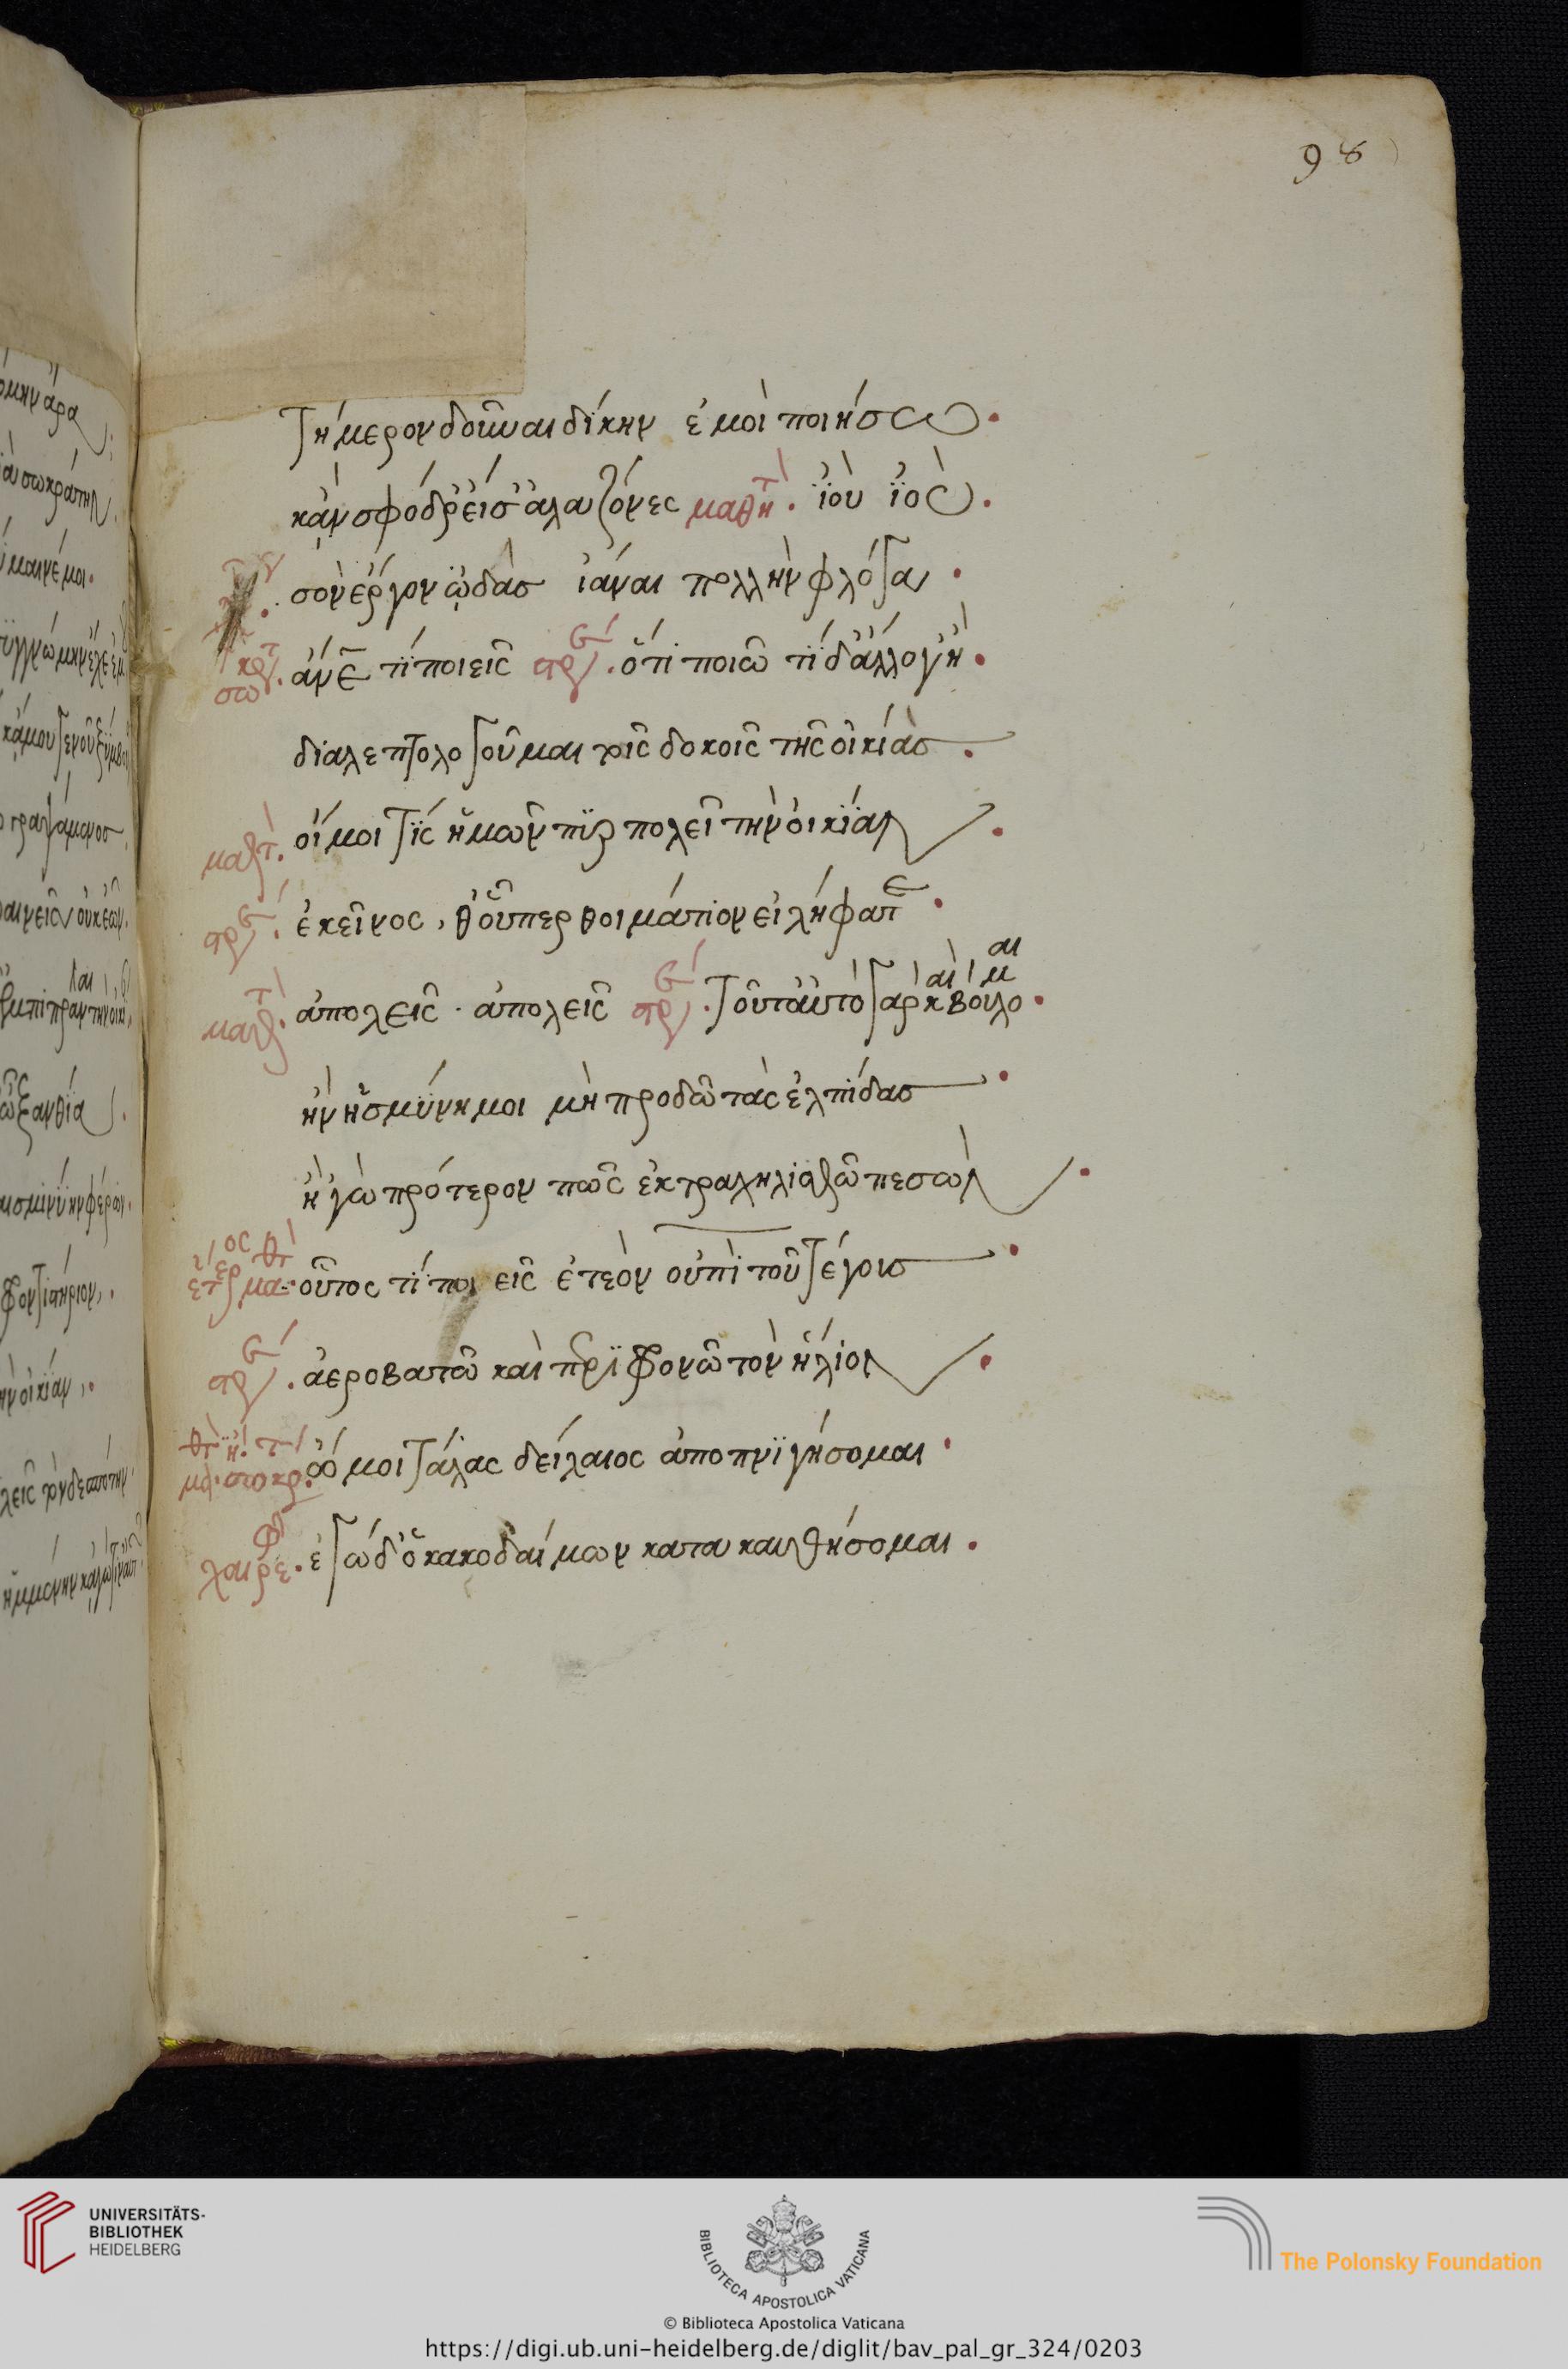 98
τήμερον δοῦναι δίκην ἐμοὶ ποιήσω.
κἄν σφόδρ' εἴσ' ἀλαζόνες μαθητ. ἰοὺ ἰού.
σὸν ἔργον ὦ δὰς ἰέναι πολλὴν φλόγα.
ἄνε τί ποιεῖς στρε. ὅτι ποιῶ τί δ' ἄλλο γ' ἢ.
διαλεπτολογοῦμαι τοῖς δοκοῖς τῆς οἰκίας.
μαθτ. οἴμοι τίς ἡμῶν πυρπολεῖ τὴν οἰκίαν.
στρε. ἐκεῖνος, οὗπερ θοἰμάτιον εἰλήφατε.
μαθτ. ἀπολεῖς. ἀπολεῖς στρε. τοῦτ' αὐτὸ γὰρ καὶ βούλομαι.
ἢν ἡ σμινύη μοι μὴ προδῶ τὰς ἐλπίδας.
ἢ 'γὼ πρότερόν πως ἐκτραχηλισθῶ πεσών.
ἕτερος μαθτ. οὗτος τί ποιεῖς ἐτεὸν οὑπὶ τοῦ τέγους.
στρε. ἀεροβατῶ καὶ περιφρονῶ τὸν ἥλιον.
μαθτ. ἢ σωκρτ. οἴμοι τάλας δείλαιος ἀποπνιγήσομαι.
χαιρεφ. ἐγὼ δ' ὁ κακοδαίμων κατακαυθήσομαι.
UNIVERSITÄTS-
BIBLIOTHEK
HEIDELBERG
BIBLIOTECA APOSTOLICA VATICANA
© Biblioteca Apostolica Vaticana
The Polonsky Foundation
https://digi.ub.uni-heidelberg.de/diglit/bav_pal_gr_324/0203